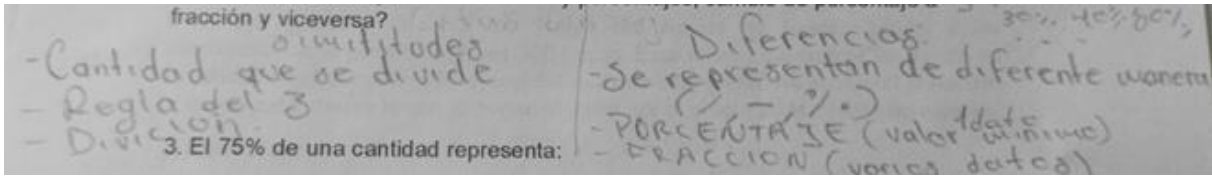 fracción y viceversa?
30%, 40%, 80%,
similitudes
- Cantidad que se divide
- Regla del 3
- Divicion.
Diferencias.
- Se representan de diferente manera
( / - %.)
- PORCENTAJE (valor 1dato minimo)
- FRACCION (varios datos)
3. El 75% de una cantidad representa: